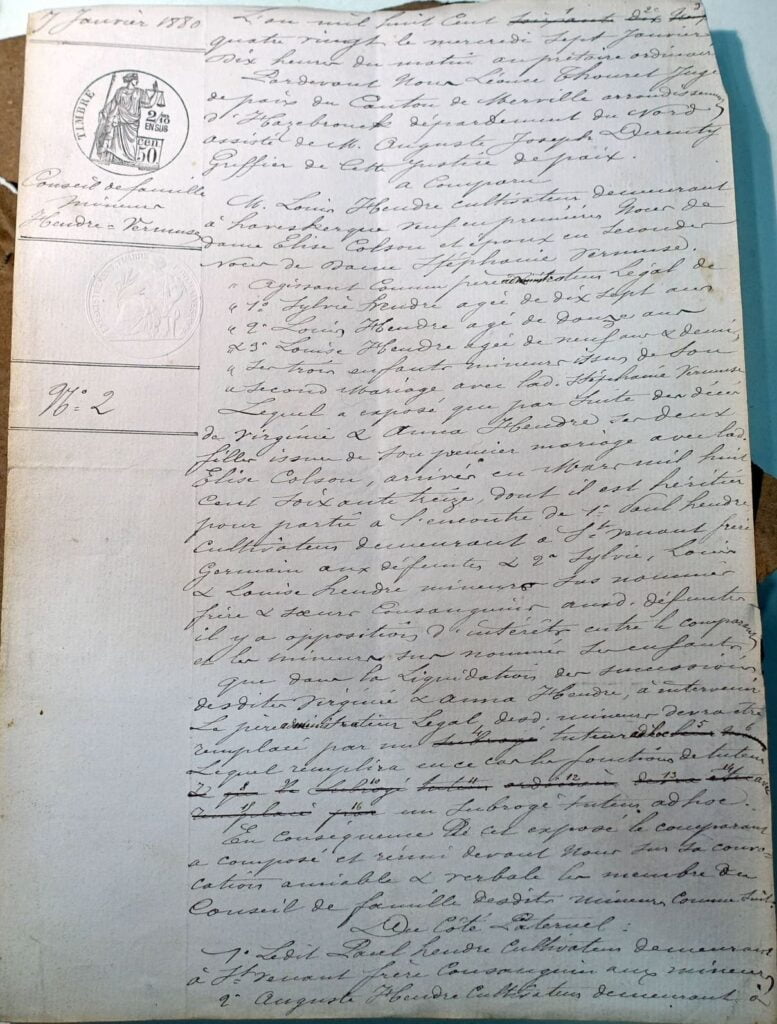 7 Janvier 1880
TIMBRE
2/10
EN SUS
50
Conseil de famille
mineurs
Hendre-Vermusse
N° 2
L'an mil huit cent soixante dix
quatre vingt le mercredi sept Janvier
Dix heures du matin au prétoire ordinaire
Pardevant Nous Léonce Thouret Juge
de paix du Canton de Merville arrondissement
d'Hazebrouck département du Nord
assisté de M. Auguste Joseph Derenty
Greffier de cette Justice de paix.
a Comparu
M. Louis Hendre cultivateur demeurant
à haverskerque veuf en premières Noces de
dame Elise Colson et époux en secondes
Noces de Dame Stéphanie Vermusse.
" Agissant Comme père administrateur légal de
" 1° Sylvie hendre agée de dix sept ans
" 2° Louis Hendre agé de douze ans
" & 3° Louise Hendre agée de neuf ans & demi,
" Ses trois enfants mineurs issus de son
" second Mariage avec lad. Stéphanie Vermusse
Lequel a exposé que par suite des décès
de Virginie & Anna Hendre ses deux
filles issues de son premier mariage avec lad.
Elise Colson, arrivés en Mars mil huit
cent soixante treize, dont il est héritier
pour partie à l'encontre de 1° Paul hendre
Cultivateur demeurant à St. Venant frère
Germain aux défuntes & 2° Sylvie, Louis
& Louise hendre mineurs sus nommés
frère & soeurs Consanguins auxd. défuntes
il y a opposition d'intérêts entre le comparant
et les mineurs sus nommés ses enfants
que dans la liquidation des successions
desdites Virginie & Anna Hendre, à intervenir
Le père administrateur Légal, desd. mineurs devra être
remplacé par un subrogé tuteur adhoc
Lequel remplira en ce cas les fonctions de tuteur avec
subrogé tuteur
remplacé par un subrogé tuteur adhoc.
En Conséquence de cet exposé le comparant
a composé et réuni devant Nous sur sa convo-
cation amiable & verbale les membres du
Conseil de famille desdits mineurs comme suit:
Du Côté Paternel:
1° Ledit Paul hendre Cultivateur demeurant
à St. Venant frère Consanguin aux mineurs
2° Auguste Hendre Cultivateur demeurant à